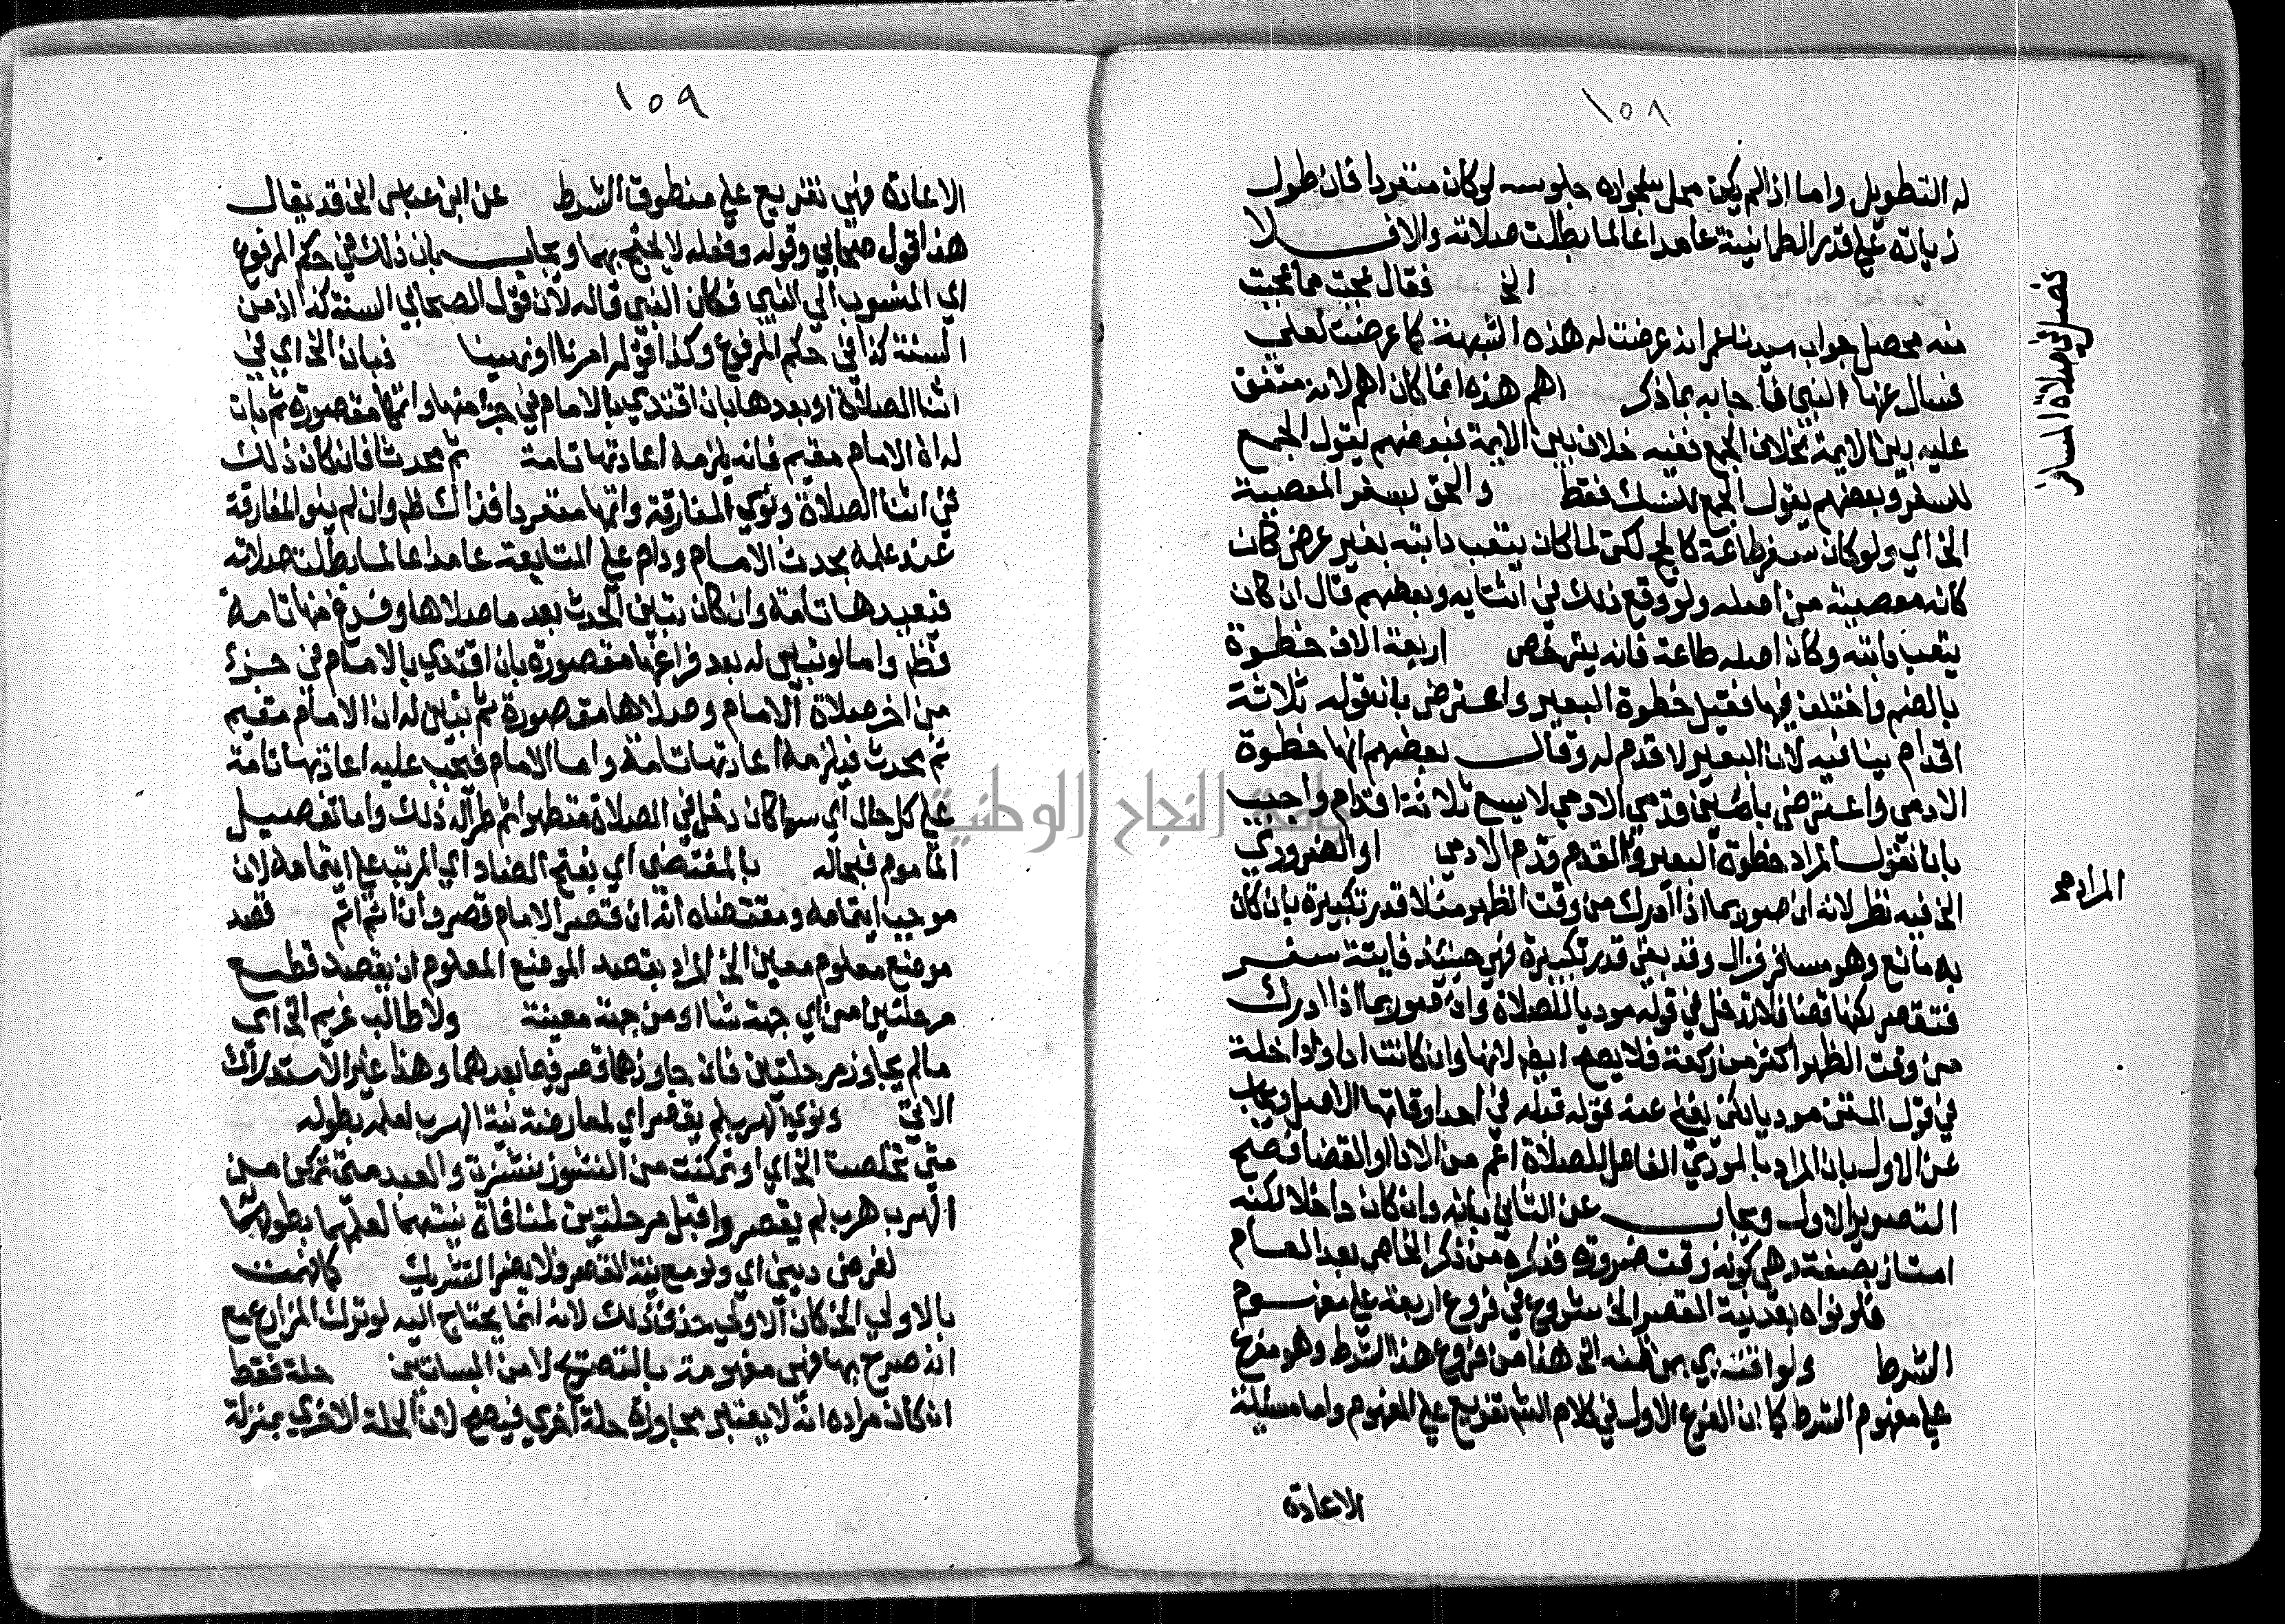 ١٥٨
له التطويل واما اذا لم يكن محل سلجواره جلوسه لو كان منفردا فان طول
زيادة علي قدر الطمانينة عامدا عالما بطلت صلاته والا فلا
الخ فقال عجبت مما عجبت
منه محصل جواب سيدنا عمر انه عرضت له هذه الشبهة كما عرضت لعلي
فسال عنها النبي فاجابه بما ذكر اهم هذه انما كان اهم لانه متفق
عليه بين الايمة بخلاف الجمع ففيه خلاف بين الايمة فبعضهم يقول الجمع
للسفر وبعضهم يقول الجمع للنسك فقط والحق بسفر المعصية
الخ اي ولو كان سفر طاعة كالحج لكن لما كان يتعب دابته بغير غرض كان
كانه معصية من اصله ولو وقع ذلك في اثنايه وبعضهم قال ان كان
يتعب دابته وكان اصله طاعة فانه يترخص اربعة الاف خطوة
بالضم واختلف فيها فقيل خطوة البعير واعترض بان قوله ثلاثة
اقدام ينافيه لان البعير لا قدم له وقال بعضهم انها خطوة
الادمي واعترض بان قدمي الادمي لا يسع ثلاثة اقدام واجيب
بانا نقول المراد خطوة البعير والقدم قدم الادمي او الضروري
الخ فيه نظر لانه ان صور بما اذا ادرك من وقت الظهر مثلا قدر تكبيرة بان كان
به مانع وهو مسافر فزال وقد بقي قدر تكبيرة فهي حينئذ فايتة سفر
فتقصر لكنها قضا فلا تدخل في قوله موديا للصلاة وان صور بما اذا ادرك
من وقت الظهر اكثر من ركعة فلا يصح ايضا لانها وان كانت ادا وداخلة
في قول المتن موديا لكن يغني عنه قوله قبله في احد اوقاتها الاصل ويجاب
عن الاول بان المراد بالمودي الفاعل للصلاة اعم من الادا والقضا فصح
التصوير الاول ويجاب عن الثاني بانه وان كان داخلا لكنه
امتاز بصفة وهي كونه وقت ضرورة فذكره من ذكر الخاص بعد العام
فلو نواه بعد نية القصر الخ شروع في فروع اربعة علي مفهوم
الشرط ولو اقتدي بمن ظنه الخ هذا من فروع هذا الشرط وهو مفرع
علي مفهوم الشرط كما ان الفرع الاول في كلام الشم تفريع علي المفهوم واما مسئلة
الاعادة
فصل في صلاة المسافر
١٥٩
الاعادة فهي تفريع علي منطوق الشرط عن ابن عباس الخ قد يقال
هذا قول صحابي وقوله وفعله لا يحتج بهما ويجاب بان ذلك في حكم المرفوع
اي المنسوب الي النبي فكان النبي قاله لان قول الصحابي السنة كذا او من
السنة كذا في حكم المرفوع وكذا قوله امرنا او نهينا فبان الخ اي في
اثنا الصلاة او بعدها بان اقتدي بالامام في جزء منها واتمها مقصورة ثم بان
له ان الامام مقيم فانه يلزمه اعادتها تامة ثم محدثا فان كان ذلك
في اثنا الصلاة ونوي المفارقة واتمها منفردا فذاك ظم وان لم ينو المفارقة
عند علمه بحدث الامام ودام علي المتابعة عامدا عالما بطلت صلاته
فيعيدها تامة وان كان تبين الحدث بعد ما صلاها وفرغ منها تامة
فظم واما لو تبين له بعد فراغها مقصورة بان اقتدي بالامام في جزء
من اخر صلاة الامام وصلاها مقصورة ثم تبين له ان الامام مقيم
ثم محدث فيلزمه اعادتها تامة واما الامام فيجب عليه اعادتها تامة
علي كل حال اي سوا كان دخل في الصلاة متطهرا ثم طرا له ذلك واما تفصيل
الماموم فبحاله بالمقتضي اي بفتح الضاد اي المرتب علي ايتمامه لان
موجب ايتمامه ومقتضاه انه ان قصر الامام قصر وان اتم اتم قصد
موضع معلوم معين الخ المراد بقصد الموضع المعلوم ان يقصد قطع
مرحلتين من اي جهة شا او من جهة معينة ولا طالب غريم الخ اي
ما لم يجاوز مرحلتين فان جاوزهما قصر فيما بعدهما وهذا عين الاستدراك
الاتي ونوي الهرب لم يقصر اي لمعارضة نية الهرب لعلمه بطوله
متي تخلصت الخ اي او تمكنت من النشوز نشزت والعبد متي تمكن من
الهرب هرب لم يقصر واقبل مرحلتين لمنافاة نيتهما لعلمهما بطولهما
لغرض ديني اي ولو مع نية القصر ولا يضر التشريك كما فهمت
بالاولي الخ كان الاولي حذف ذلك لانه انما يحتاج اليه لو ترك المزارع مع
انه صرح بها فهي مفهومة بالتصريح لا من البساتين حلة فقط
ان كان مراده انه لا يعتبر مجاوزة حلة اخري فيصح لان الحلة الاخري بمنزلة
جامعة النجاح الوطنية